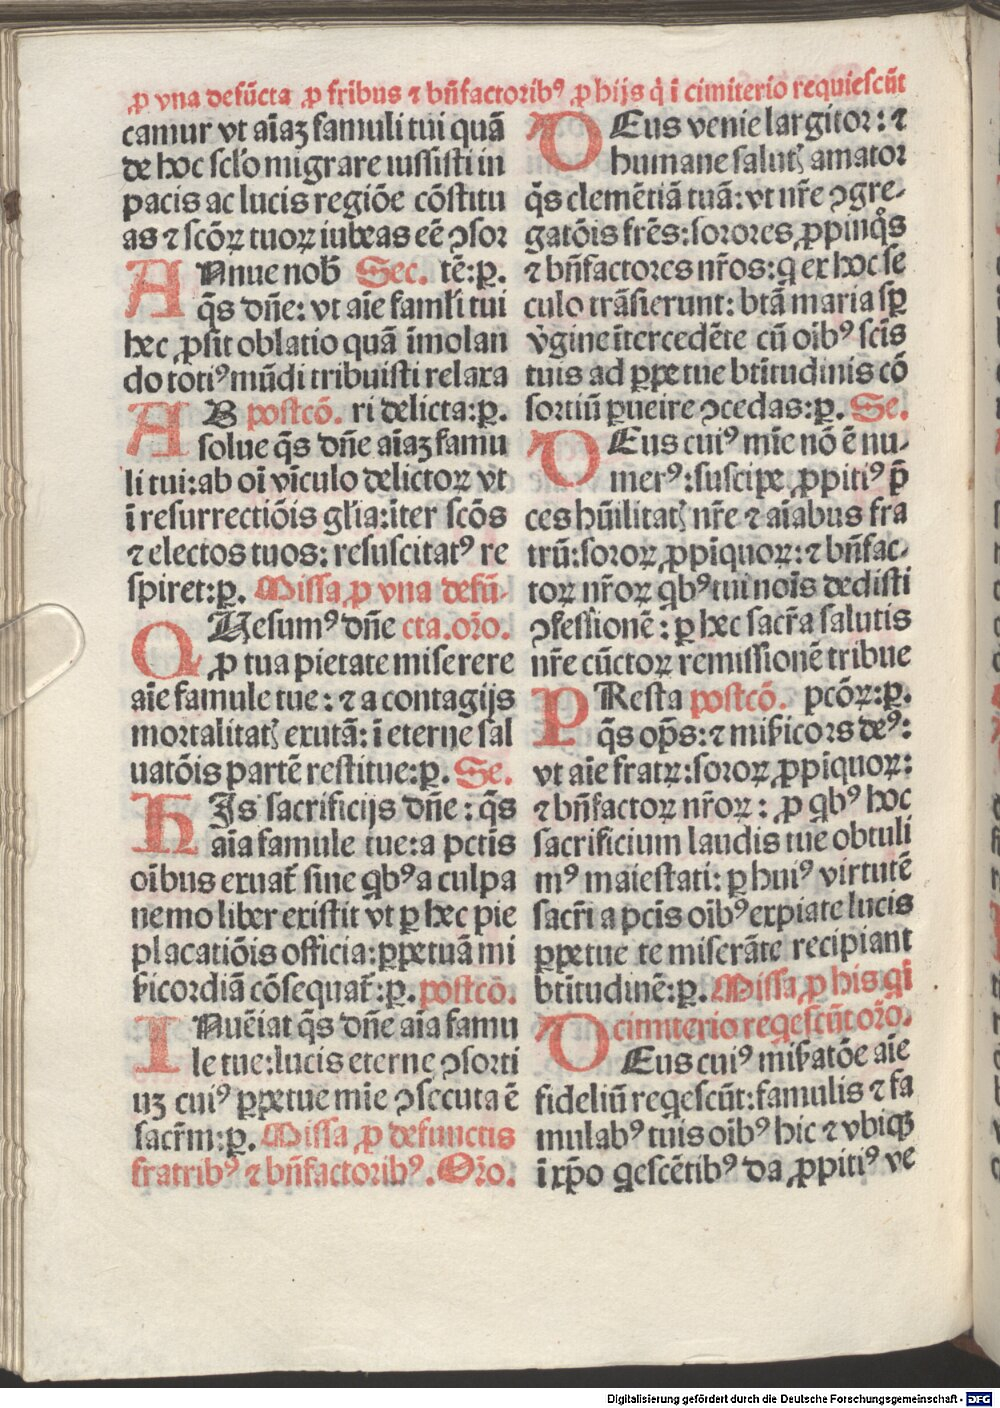 ꝓ vna defūcta ꝓ fr̄ibus ⁊ bn̄factoribꝰ ꝓ hijs q̇ ī cimiterio requiescūt
camur vt aīaꝫ famuli tui quā
de hoc scl̄o migrare iussisti in
pacis ac lucis regiōe cōstitu
as ⁊ scōꝝ tuoꝝ iubeas eē ꝯsor
ANnue nob̄ Sec. tē:ꝑ.
q̄s dn̄e: vt aīe faml̄i tui
hec ꝓsit oblatio quā īmolan
do totiꝰ mūdi tribuisti relaxa
AB postcō. ri delicta:ꝑ.
solue q̄s dn̄e aīaꝫ famu
li tui:ab oī vīculo delictoꝝ vt
ī resurrectiōis gl̄ia:īter scōs
⁊ electos tuos: resuscitatꝰ re
spiret:ꝑ. Missa ꝓ vna defū-
QUesumꝰ dn̄e cta.or̄o.
ꝓ tua pietate miserere
aīe famule tue: ⁊ a contagijs
mortalitatꝭ exutā: ī eterne sal
uatōis partē restitue:ꝑ. Se.
HIs sacrificijs dn̄e: q̄s
aīa famule tue:a pctīs
oībus exuat̄ sine qbꝰ a culpa
nemo liber existit vt ꝑ hec pie
placatiōis officia:ꝑpetuā mi
sicordiā cōsequat̄:ꝑ. postcō.
INuēiat q̄s dn̄e aīa famu
le tue:lucis eterne ꝯsorti
uꝫ cuiꝰ ꝑpetue mīe ꝯsecuta ē
sacr̄m:ꝑ. Missa ꝓ defunctis
fratribꝰ ⁊ bn̄factoribꝰ. Or̄o.
DEus venie largitor: ⁊
humane salutꝭ amator
q̄s clemētiā tuā: vt nr̄e ꝯgre-
gatōis frēs: sorores ꝓpinq̊s
⁊ bn̄factores nr̄os: q̇ ex hoc se
culo trāsierunt: btā maria sꝑ
v̓gine ītercedēte cū oībꝰ scīs
tuis ad ꝑpetue btītudinis cō
sortiū ꝑueire ꝯcedas:ꝑ. Se.
DEus cuiꝰ mīe nō ē nu-
merꝰ: suscipe ꝓpitiꝰ p̄
ces hūilitatꝭ nr̄e ⁊ aīabus fra
trū:soroꝝ ꝓpīquoꝝ: ⁊ bn̄fac-
toꝝ nr̄oꝝ qbꝰ tui noīs dedisti
ꝯfessionē: ꝑ hec sacr̄a salutis
nr̄e cūctoꝝ remissionē tribue
PResta postcō. pcōꝝ:ꝑ.
q̄s op̄s: ⁊ misicors deꝰ:
vt aīe fratꝝ: soroꝝ ꝓpīquoꝝ:
⁊ bn̄factoꝝ nr̄oꝝ: ꝓ qbꝰ hoc
sacrificium laudis tue obtuli
mꝰ maiestati: ꝑ huiꝰ virtutē
sacr̄i a pcīs oībꝰ expiate lucis
ꝑpetue te miserāte recipiant
btītudinē:ꝑ. Missa ꝓ his qi
cimiterio reqescūt or̄o.
DEus cuiꝰ misatōe aīe
fideliū reqescūt: famulis ⁊ fa
mulabꝰ tuis oībꝰ hic ⁊ vbiqꝫ
ī xp̄o qescētibꝰ da ꝓpitiꝰ ve
Digitalisierung gefördert durch die Deutsche Forschungsgemeinschaft - DFG